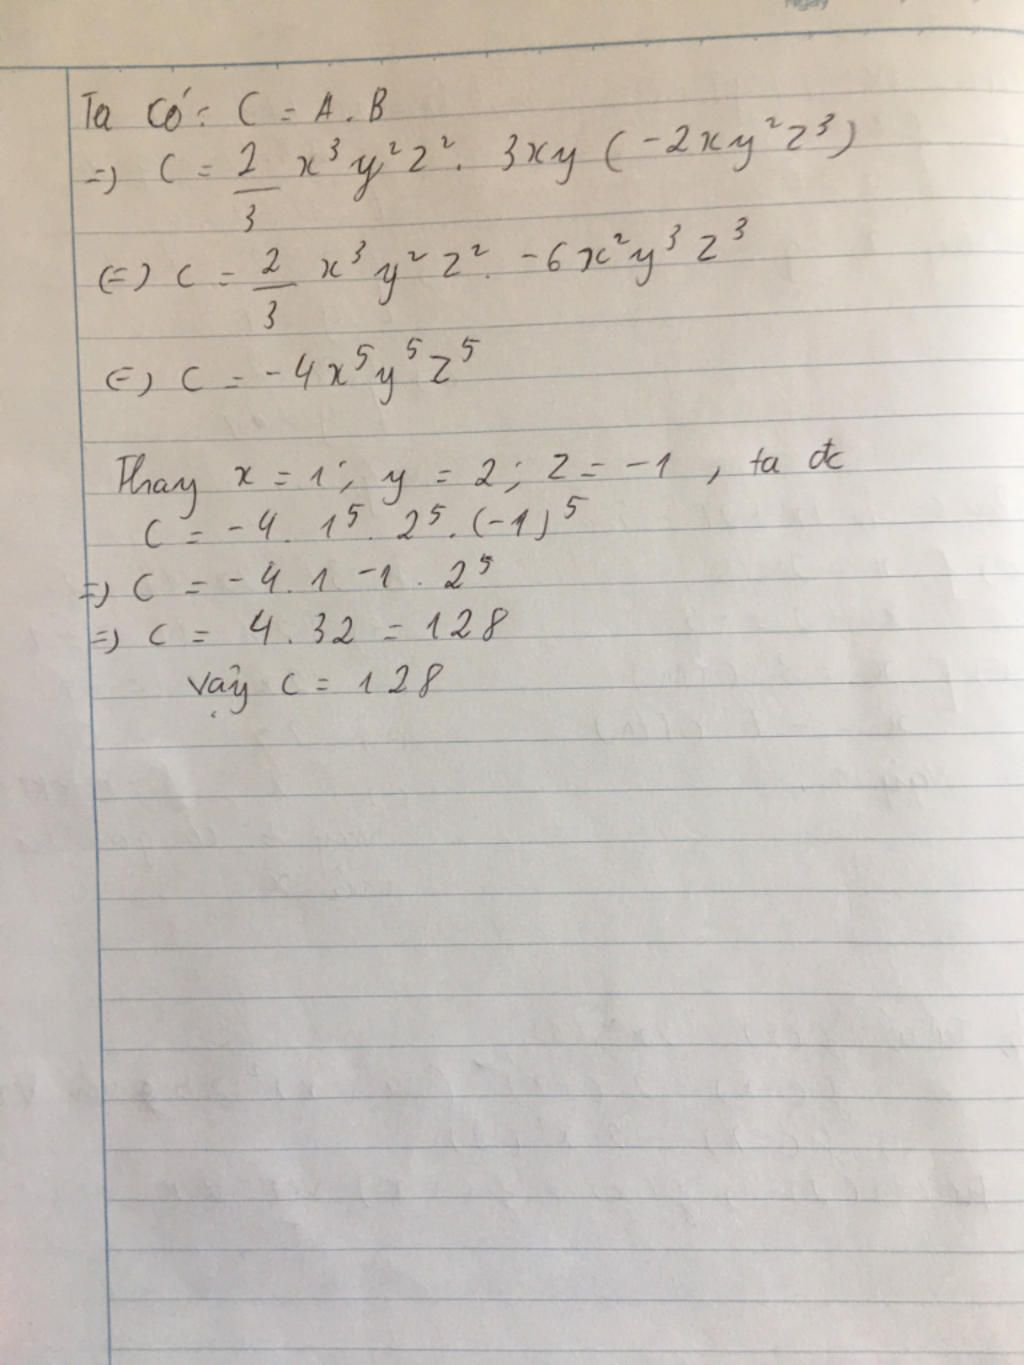 Ta có: C = A.B
=) C = 2/3 x³y²z². 3xy (-2xy²z³)
(=) C = 2/3 x³y²z². -6x²y³z³
(=) C = -4x⁵y⁵z⁵
Thay x = 1; y = 2; z = -1, ta đc
C = -4. 1⁵. 2⁵. (-1)⁵
=) C = -4. 1. -1. 2⁵
=) C = 4.32 = 128
vậy C = 128